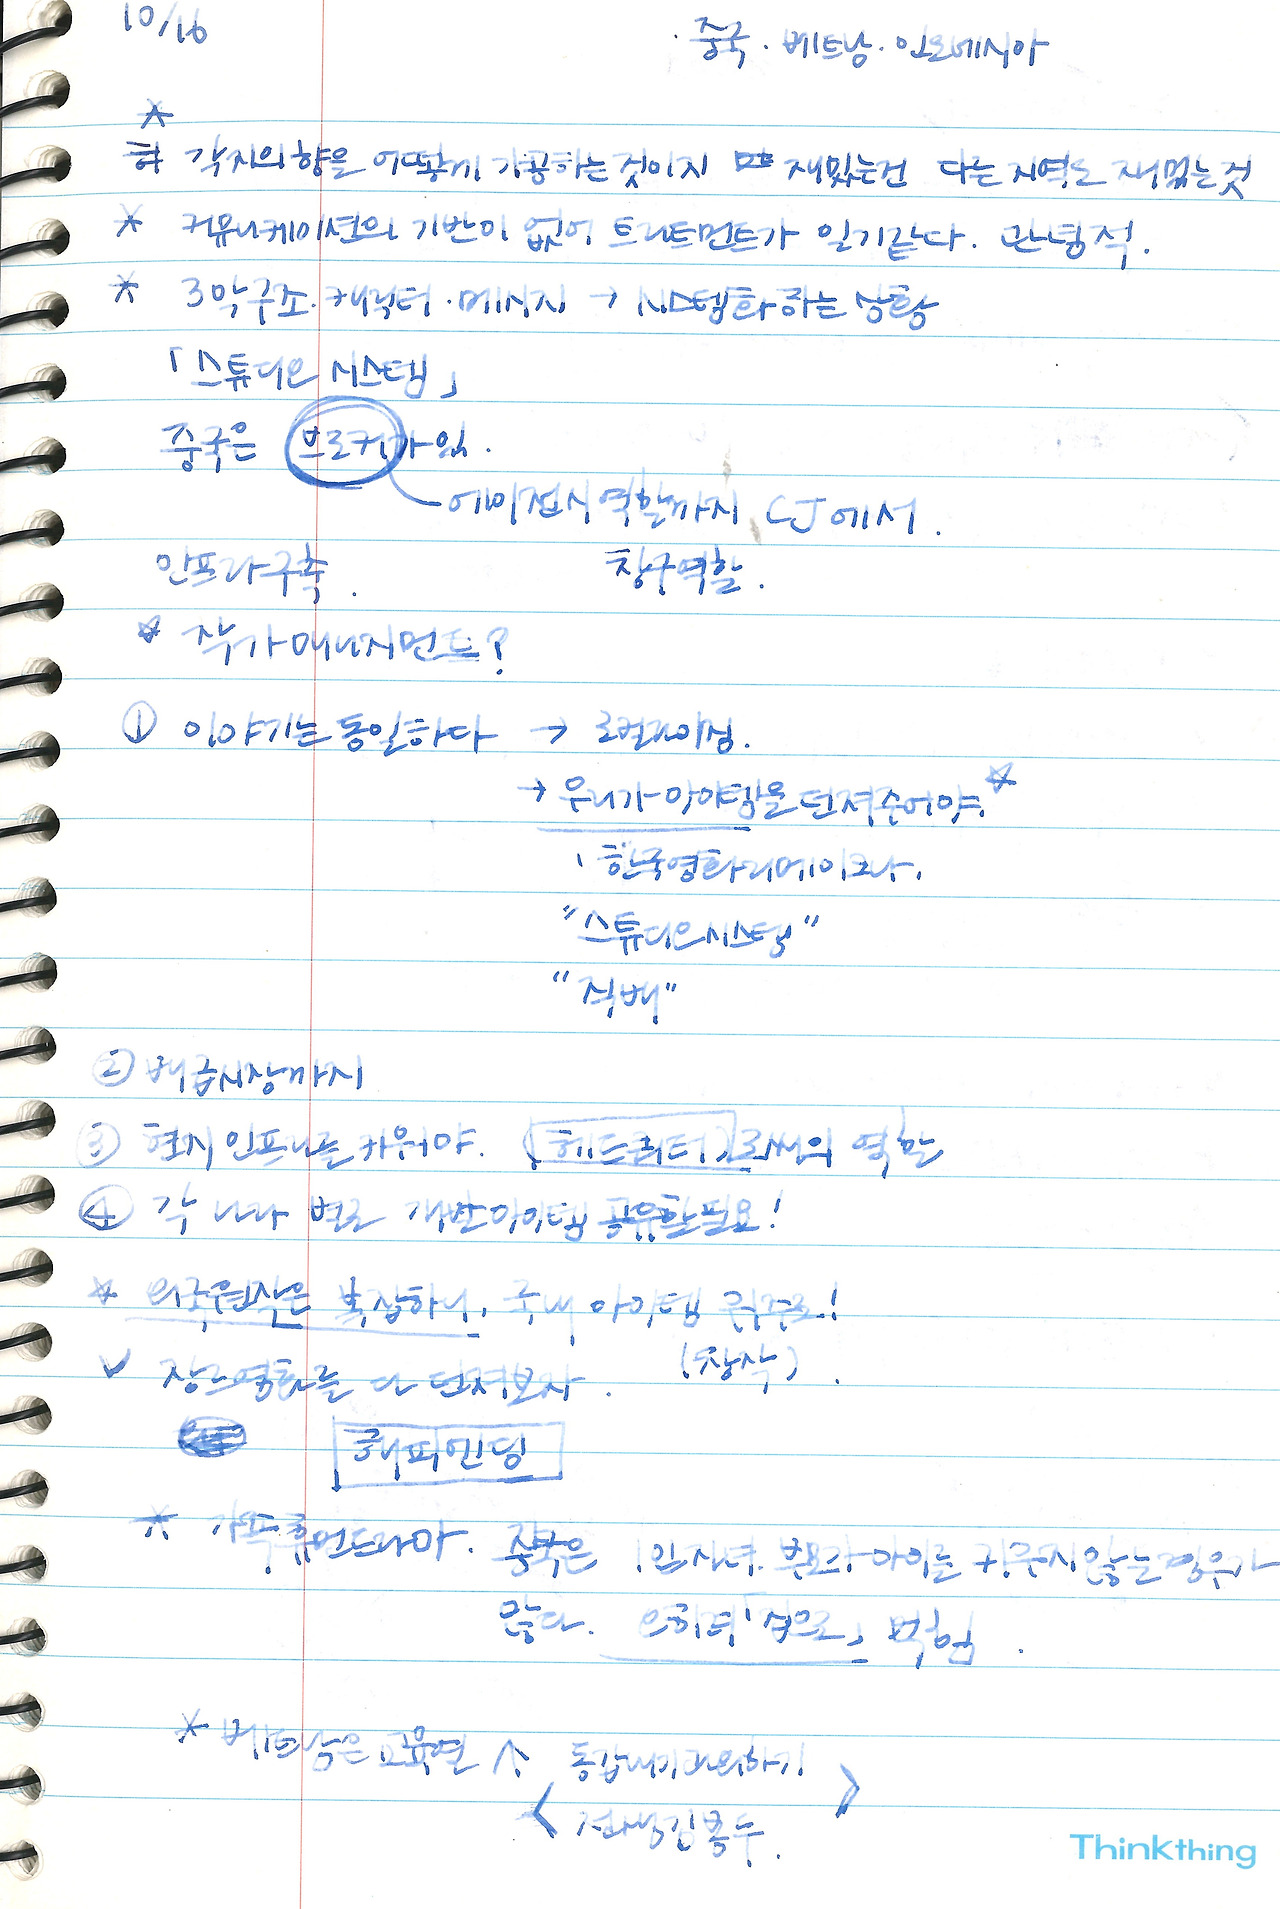 10/16
· 중국 · 베트남 · 인도네시아
* 각지의 향을 어떻게 가공하는 것이지 재밌는건 다른 지역도 재밌는 것
* 커뮤니케이션의 기반이 없어 트리트먼트가 일기같다. 관념적.
* 3막구조 · 캐릭터 · 메시지 → 시스템화 하는 상황
「스튜디오 시스템」
중국은 브로커가 있.
에이전시 역할까지 CJ에서.
인프라 구축. 창구역할.
* 작가 매니지먼트?
① 이야기는 동일하다 → 로컬라이징.
→ 우리가 아이템을 던져주어야. ☆
한국영화 리메이크나.
"스튜디오 시스템"
"직배"
② 배급시장까지
③ 현지 인프라를 키워야. 로써의 역할
④ 각 나라 별로 개발아이템 공유할 필요!
* 외국원작은 복잡하니, 국내 아이템 위주로!
(창작).
✓ 장르영화를 다 던져보자.
해피엔딩
* 가족휴먼드라마. 중국은 1인자녀. 부모가 아이를 키우지 않는 경우가
많다. 오히려 「집으로」 먹힘.
* 베트남은 교육열 ∨, 동갑내기과외하기
선생김봉두.
Thinkthing